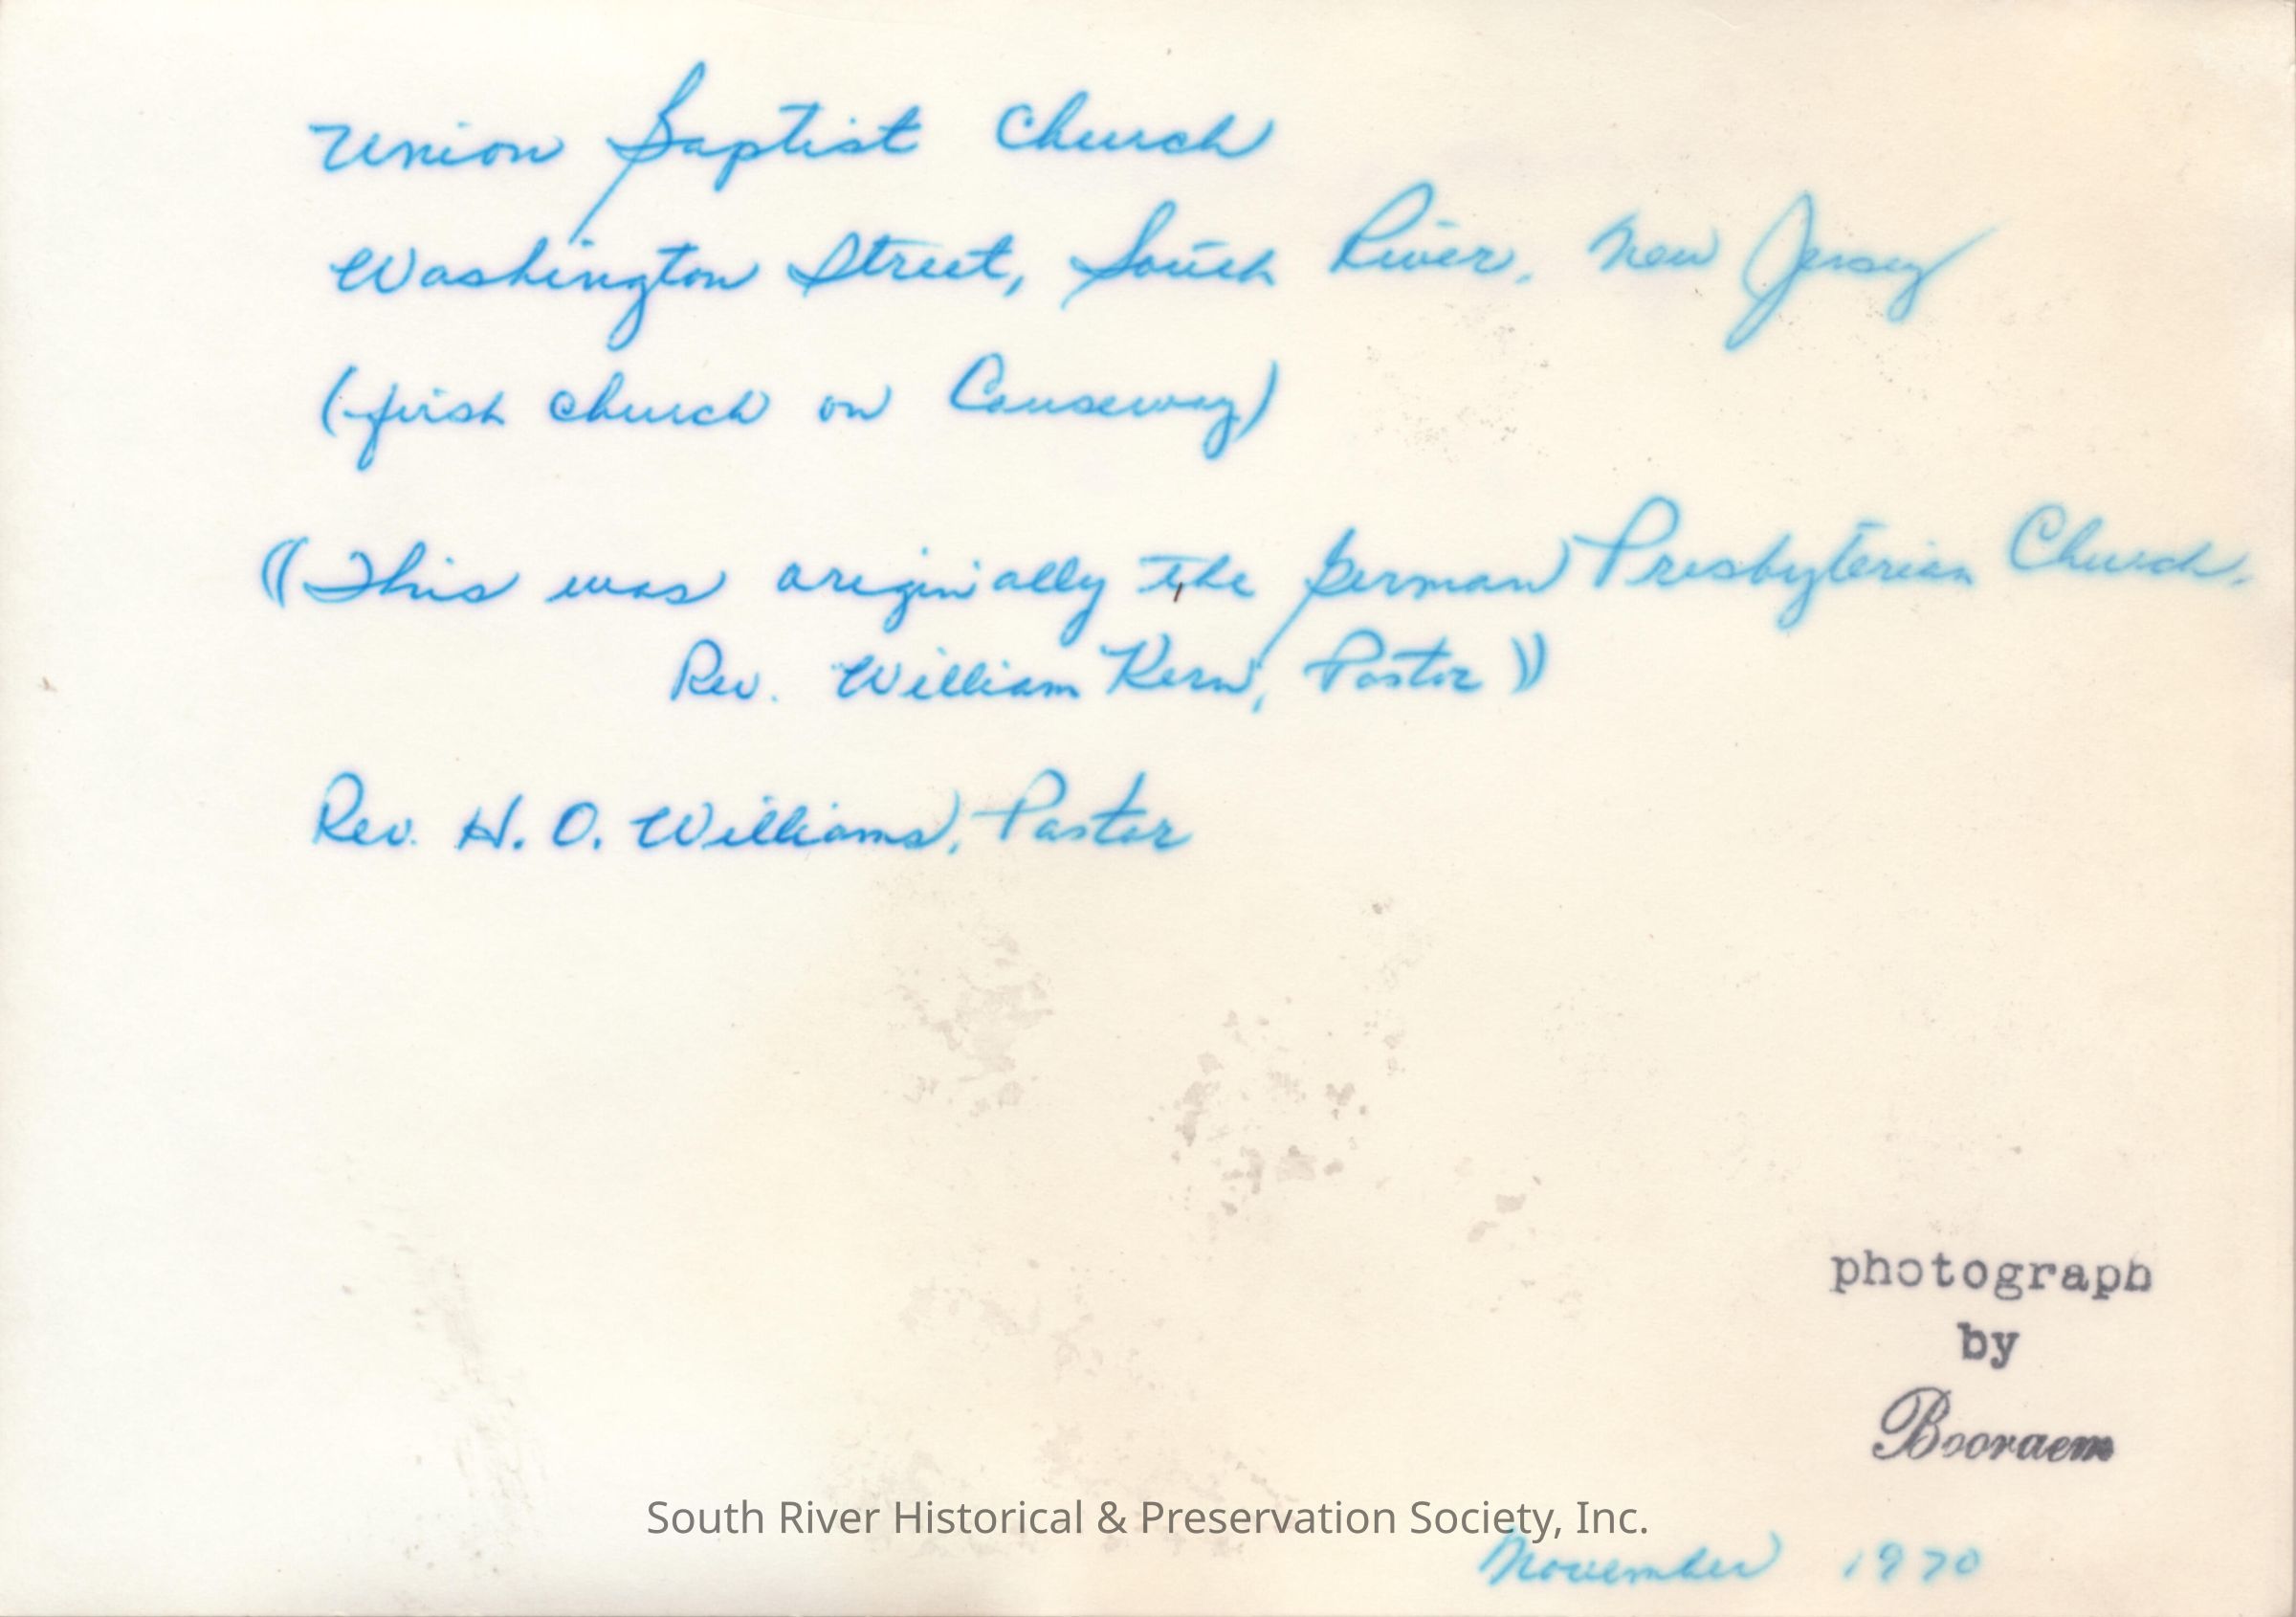 Union Baptist Church
Washington Street, South River, New Jersey
(first church on Causeway)
((This was originally the German Presbyterian Church.
Rev. William Kern, Pastor))
Rev. H. O. Williams, Pastor
photograph
by
Booraem
South River Historical & Preservation Society, Inc.
November 1970